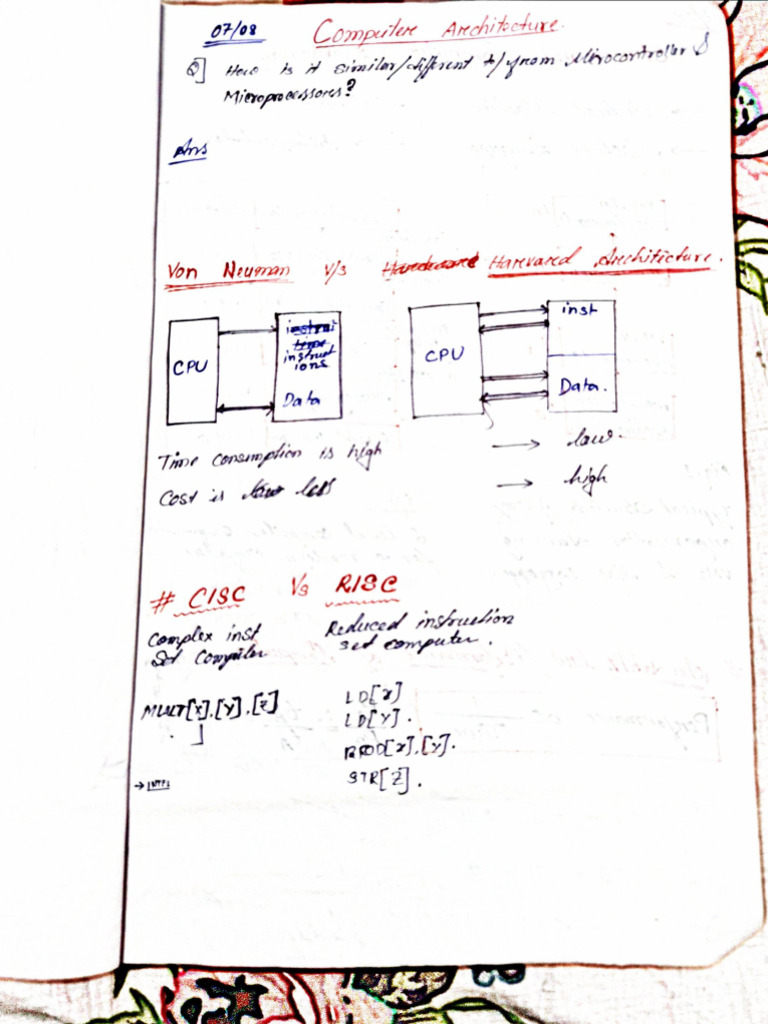 07/08 Computer Architecture.
Q] How is it similar/different to/from Microcontroller &
Microprocessors?
Ans
Von Neuman v/s Harvard Architecture.
CPU
instruct
ions
Data
CPU
inst
Data.
Time consumption is high → low.
Cost is less → high
# CISC Vs RISC
Complex inst
Set Computer
Reduced instruction
set computer.
MULT[X],[Y],[Z]
LD[X]
LD[Y].
PROD[X],[Y].
STR[Z].